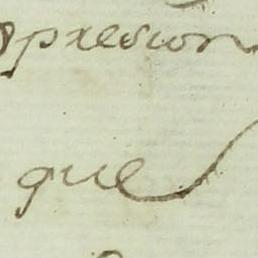 opresion
que